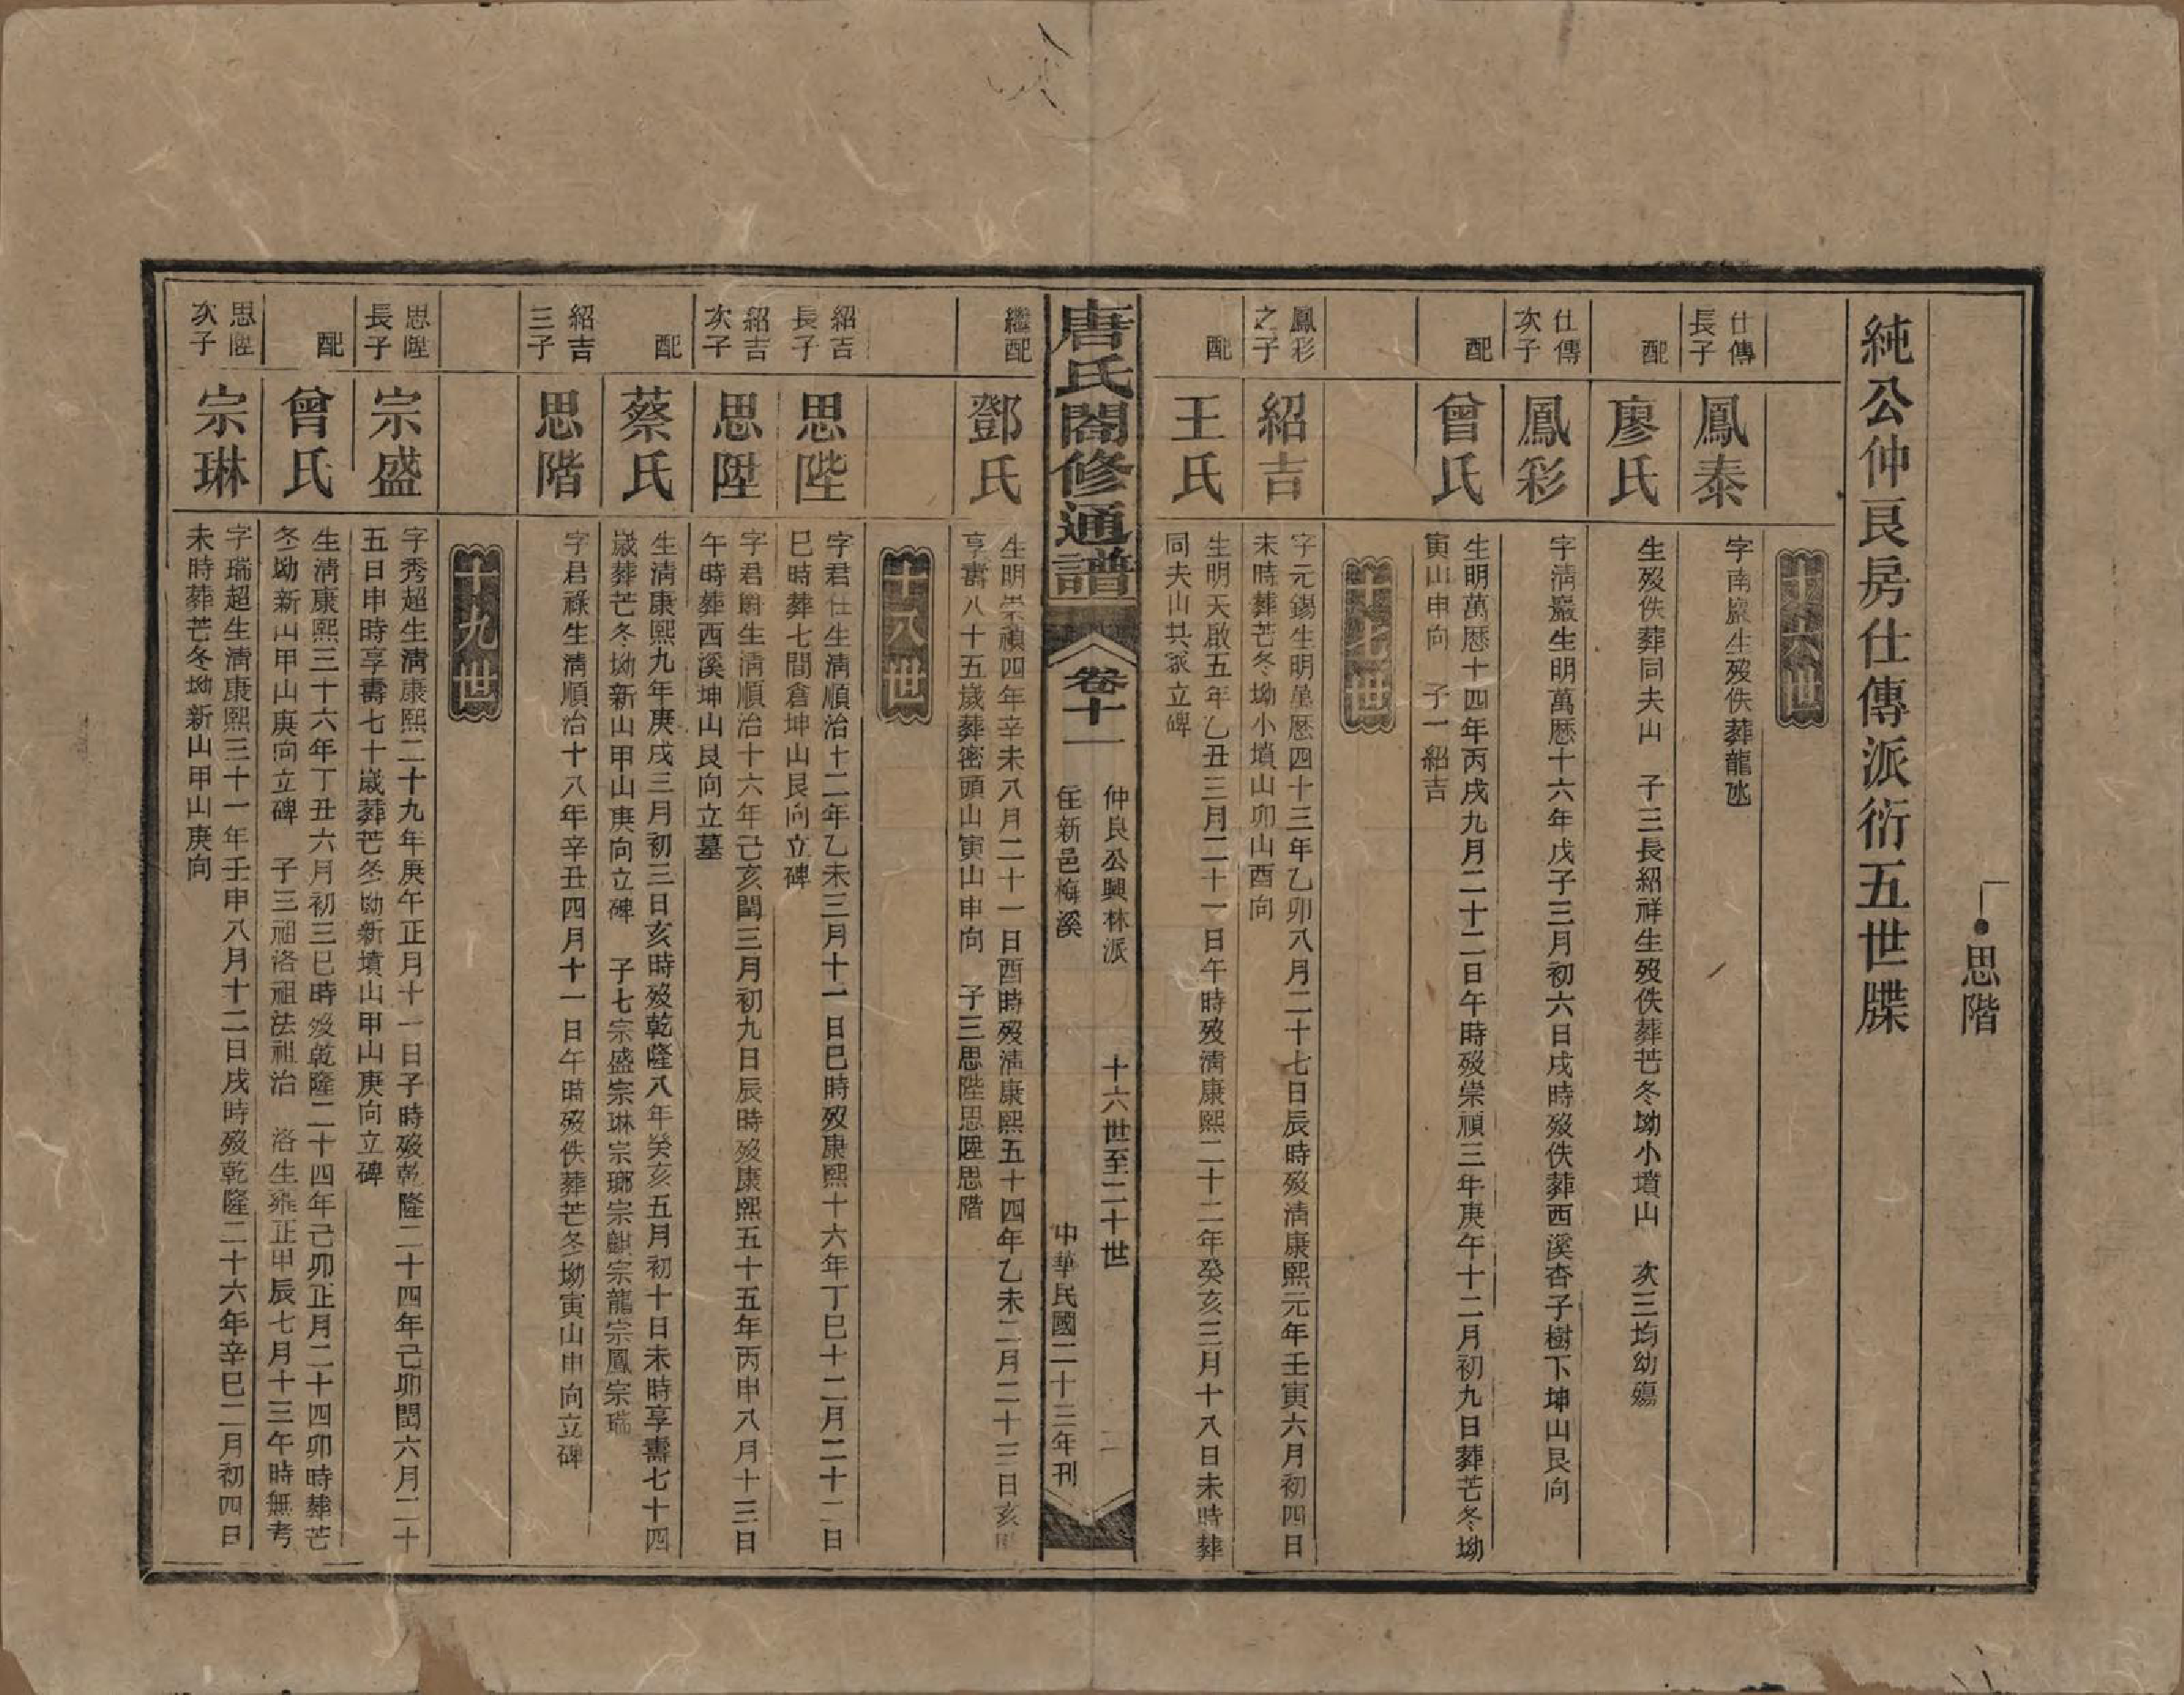 思階
純公仲良房仕傳派衍五世牒
十六世
仕傳長子
鳳泰
字南巖生歿佚葬龍氹
配
廖氏
生歿佚葬同夫山　子三長紹祥生歿佚葬芒冬坳小墳山　次三均幼殤
仕傳次子
鳳彩
字淸巖生明萬歷十六年戊子三月初六日戌時歿佚葬西溪杏子樹下坤山艮向
配
曾氏
生明萬歷十四年丙戌九月二十二日午時歿崇禎三年庚午十二月初九日葬芒冬坳
寅山申向　子一紹吉
十七世
鳳彩之子
紹吉
字元錫生明萬歷四十三年乙卯八月二十七日辰時歿淸康熙元年壬寅六月初四日
未時葬芒冬坳小墳山卯山酉向
配
王氏
生明天啟五年乙丑三月二十一日午時歿淸康熙二十二年癸亥三月十八日未時葬
同夫山共冢立碑
唐氏閤修通譜
卷十一
仲良公興林派
住新邑梅溪
十六世至二十世
二
中華民國二十三年刊
繼配
鄧氏
生明崇禎四年辛未八月二十一日酉時歿淸康熙五十四年乙未二月二十三日亥時
享壽八十五歲葬密頭山寅山申向　子三思陛思陞思階
十八世
紹吉長子
思陛
字君仕生淸順治十二年乙未三月十一日巳時歿康熙十六年丁巳十二月二十二日
巳時葬七間倉坤山艮向立碑
紹吉次子
思陞
字君爵生淸順治十六年己亥閏三月初九日辰時歿康熙五十五年丙申八月十三日
午時葬西溪坤山艮向立墓
配
蔡氏
生淸康熙九年庚戌三月初三日亥時歿乾隆八年癸亥五月初十日未時享壽七十四
歲葬芒冬坳新山甲山庚向立碑　子七宗盛宗琳宗瑯宗麒宗龍宗鳳宗瑞
紹吉三子
思階
字君祿生淸順治十八年辛丑四月十一日午時歿佚葬芒冬坳寅山申向立碑
十九世
思陞長子
宗盛
字秀超生淸康熙二十九年庚午正月十一日子時歿乾隆二十四年己卯閏六月二十
五日申時享壽七十歲葬芒冬坳新墳山甲山庚向立碑
配
曾氏
生淸康熙三十六年丁丑六月初三巳時歿乾隆二十四年己卯正月二十四卯時葬芒
冬坳新山甲山庚向立碑　子三祖洛祖法祖治　洛生雍正甲辰七月十三午時無考
思陞次子
宗琳
字瑞超生淸康熙三十一年壬申八月十二日戌時歿乾隆二十六年辛巳二月初四日
未時葬芒冬坳新山甲山庚向